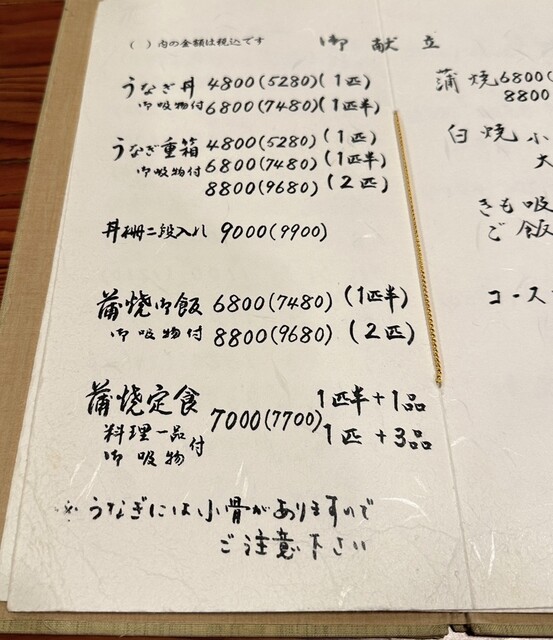 ( )内の金額は税込です
御献立
うなぎ丼 4800(5280)(1匹)
御吸物付 6800(7480)(1匹半)
うなぎ重箱 4800(5280)(1匹)
御吸物付 6800(7480)(1匹半)
8800(9680)(2匹)
二段入れ 9000(9900)
蒲焼御飯 6800(7480)(1匹半)
御吸物付 8800(9680)(2匹)
蒲焼定食 7000(7700) 1匹半+1品
料理一品付 1匹+3品
御吸物
※うなぎには小骨がありますので
ご注意下さい
蒲焼6800(
8800
白焼 小
大
きも吸
ご飯
コース